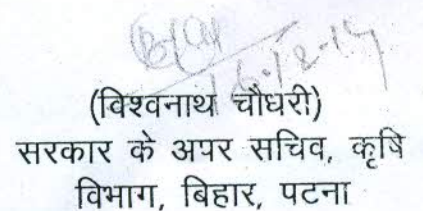 16-12-14
(विश्वनाथ चौधरी)
सरकार के अपर सचिव, कृषि
विभाग, बिहार, पटना